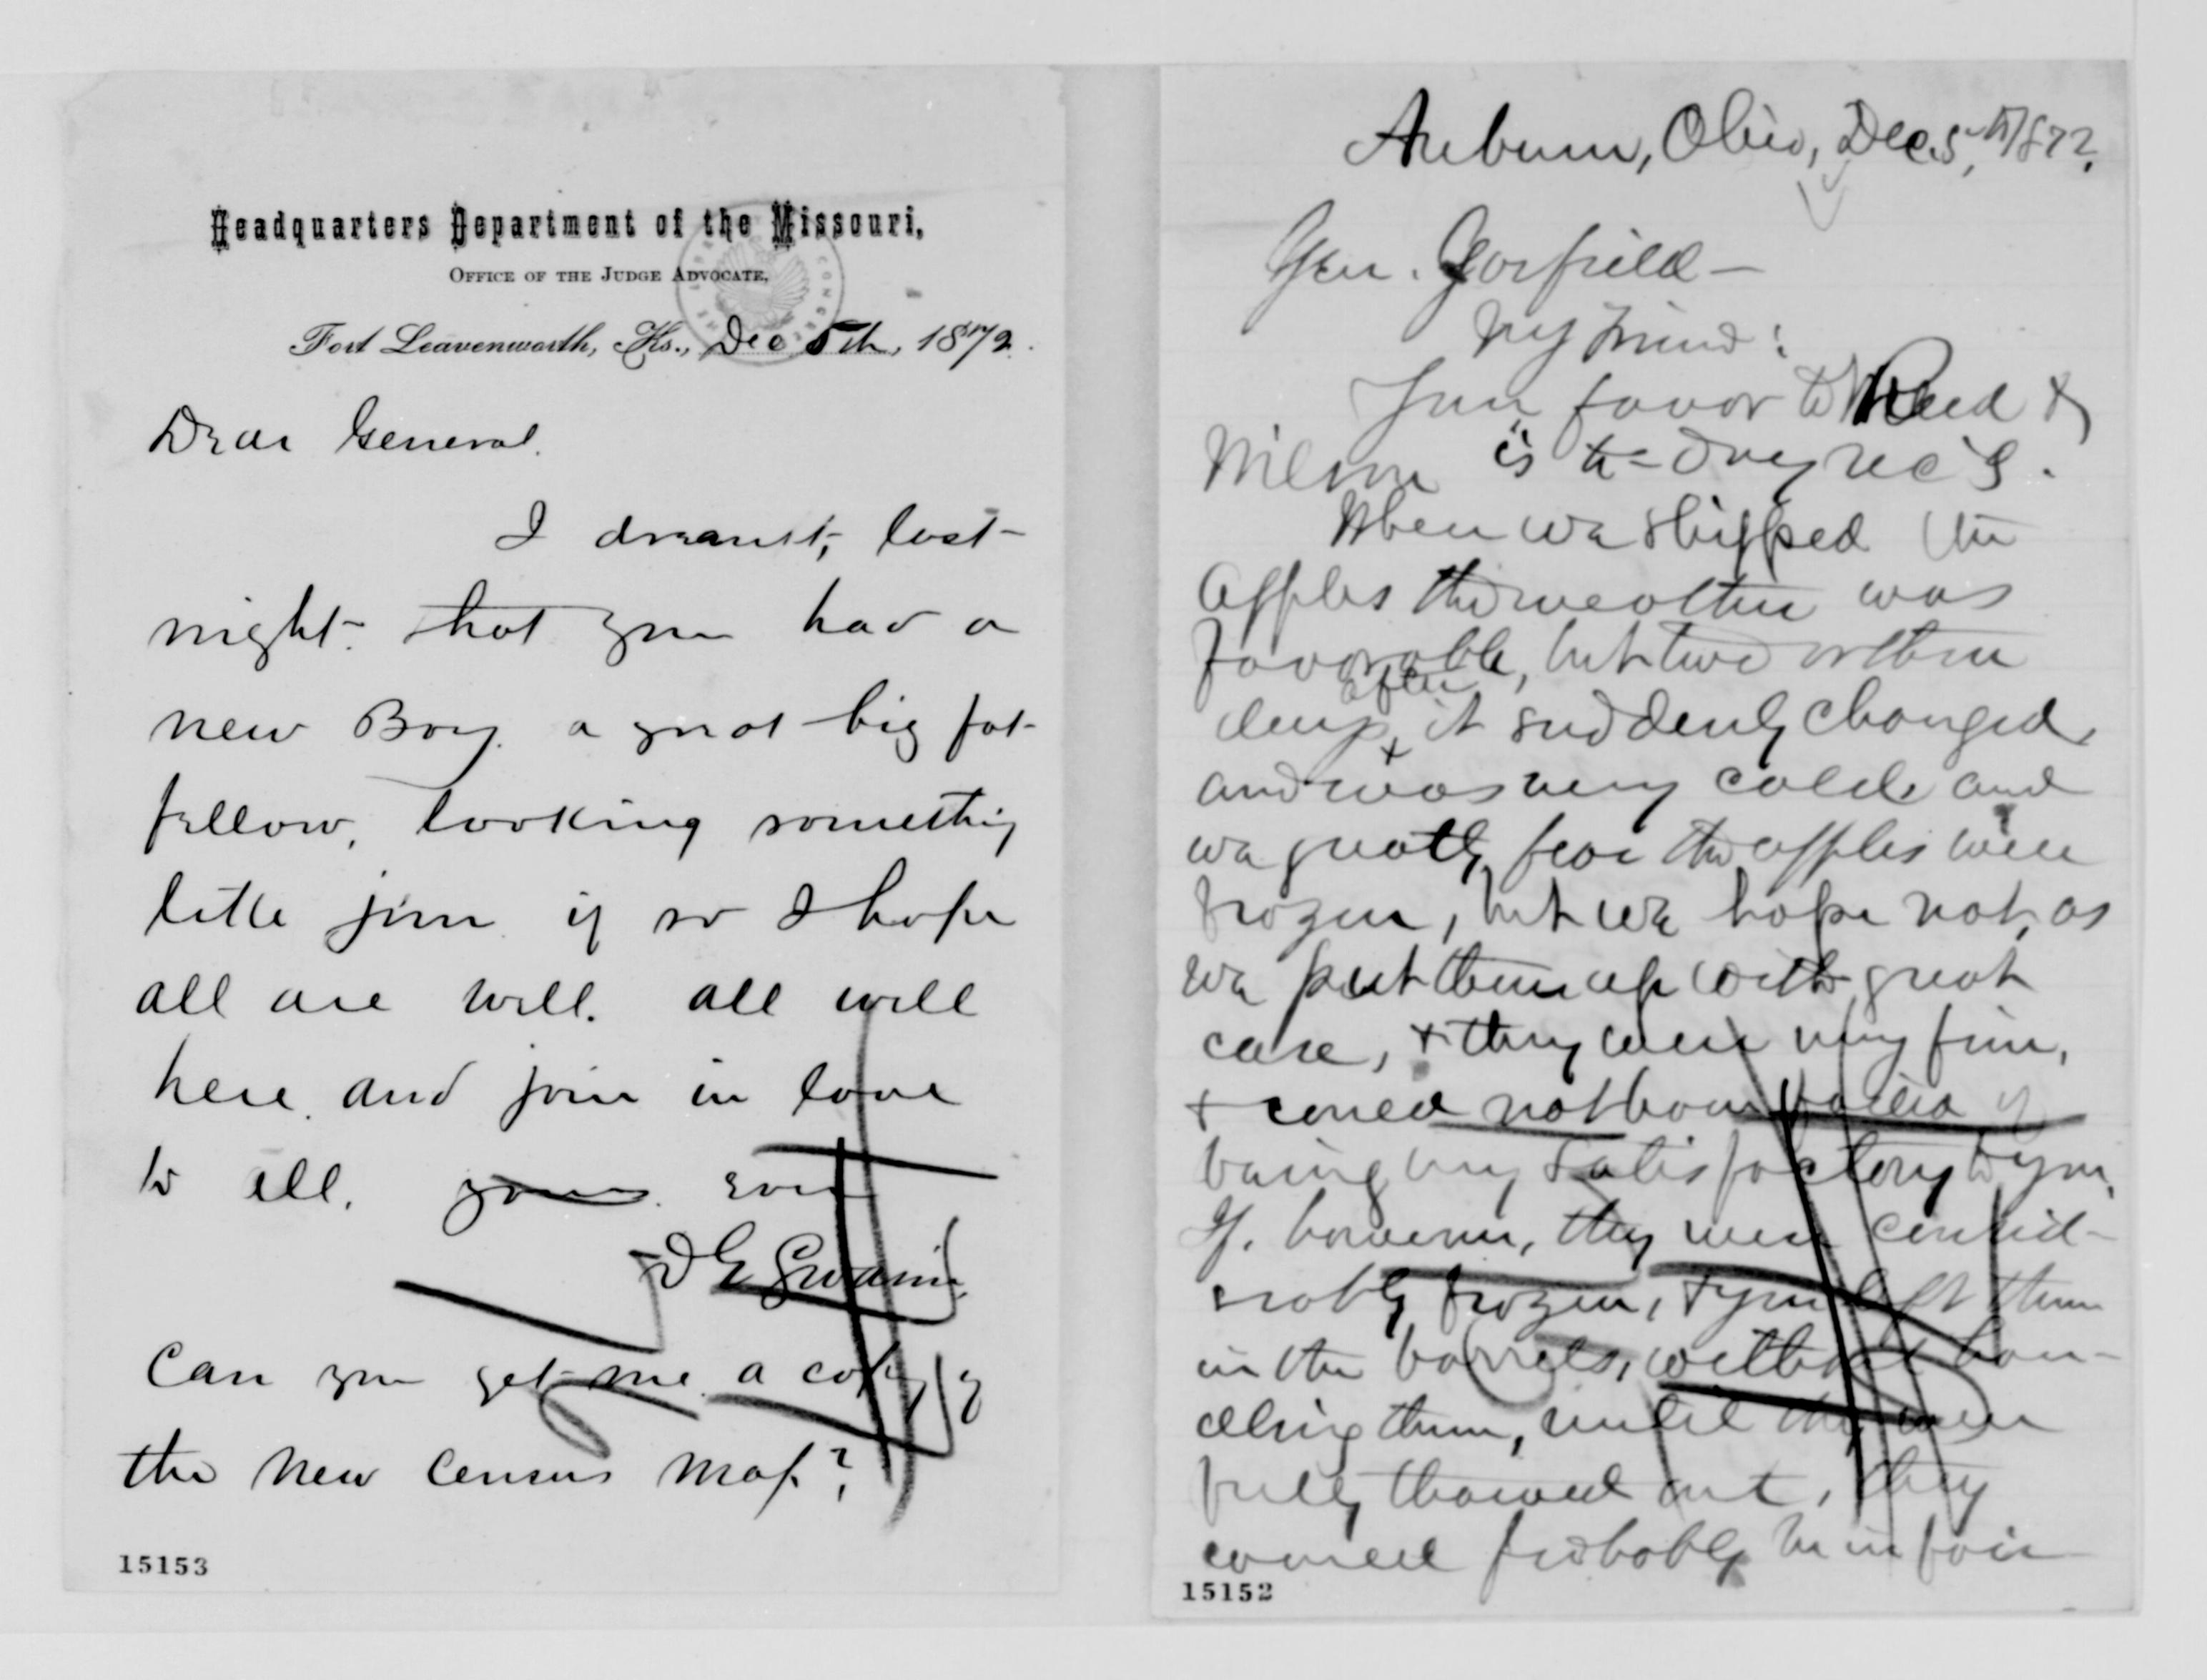 Headquarters Department of the Missouri,
OFFICE OF THE JUDGE ADVOCATE,
Fort Leavenworth, Ks., Dec 5th, 1872.
Dear General.
I dreamt, last
night that you had a
new Boy. a great big fat
fellow, looking something
little jim if so I hope
all are well. all well
here. and join in love
to all. yours ever
D G Swaim
Can you get me a copy of
the new Census Map?
15153
Auburn, Ohio, Dec. 5, 1872.
Gen. Garfield —
My Friend:
Your favor to Reed &
Wilson is to-day rec'd.
When we shipped the
apples the weather was
favorable, but two or three
days after it suddenly changed,
and was very cold and
we greatly fear the apples were
frozen, but we hope not, as
we put them up with great
care, + they were very fine,
+ could not have failed of
being very satisfactory to you.
If, however, they were consid-
erably frozen, + you left them
in the barrels, without han-
dling them, until they were
fully thawed out, they
would probably be in fair
15152